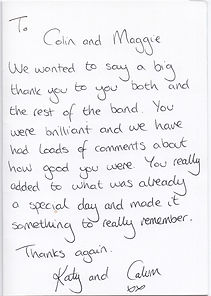 To
Colin and Maggie
We wanted to say a big
thank you to you both and
the rest of the band. You
were brilliant and we have
had loads of comments about
how good you were. You really
added to what was already
a special day and made it
something to really remember.
Thanks again.
Katy and Calum
xox